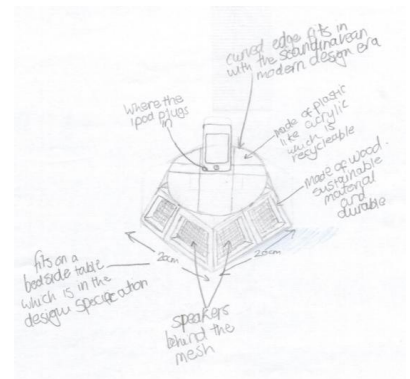 curved edge fits in
with the scandinavean
modern design era
where the
ipod plugs
in
made of plastic
like acrylic
which is
recycleable
made of wood.
sustainable
material
and
durable
fits on a
bedside table
which is in the
design specification
20cm
20cm
speakers
behind the
mesh